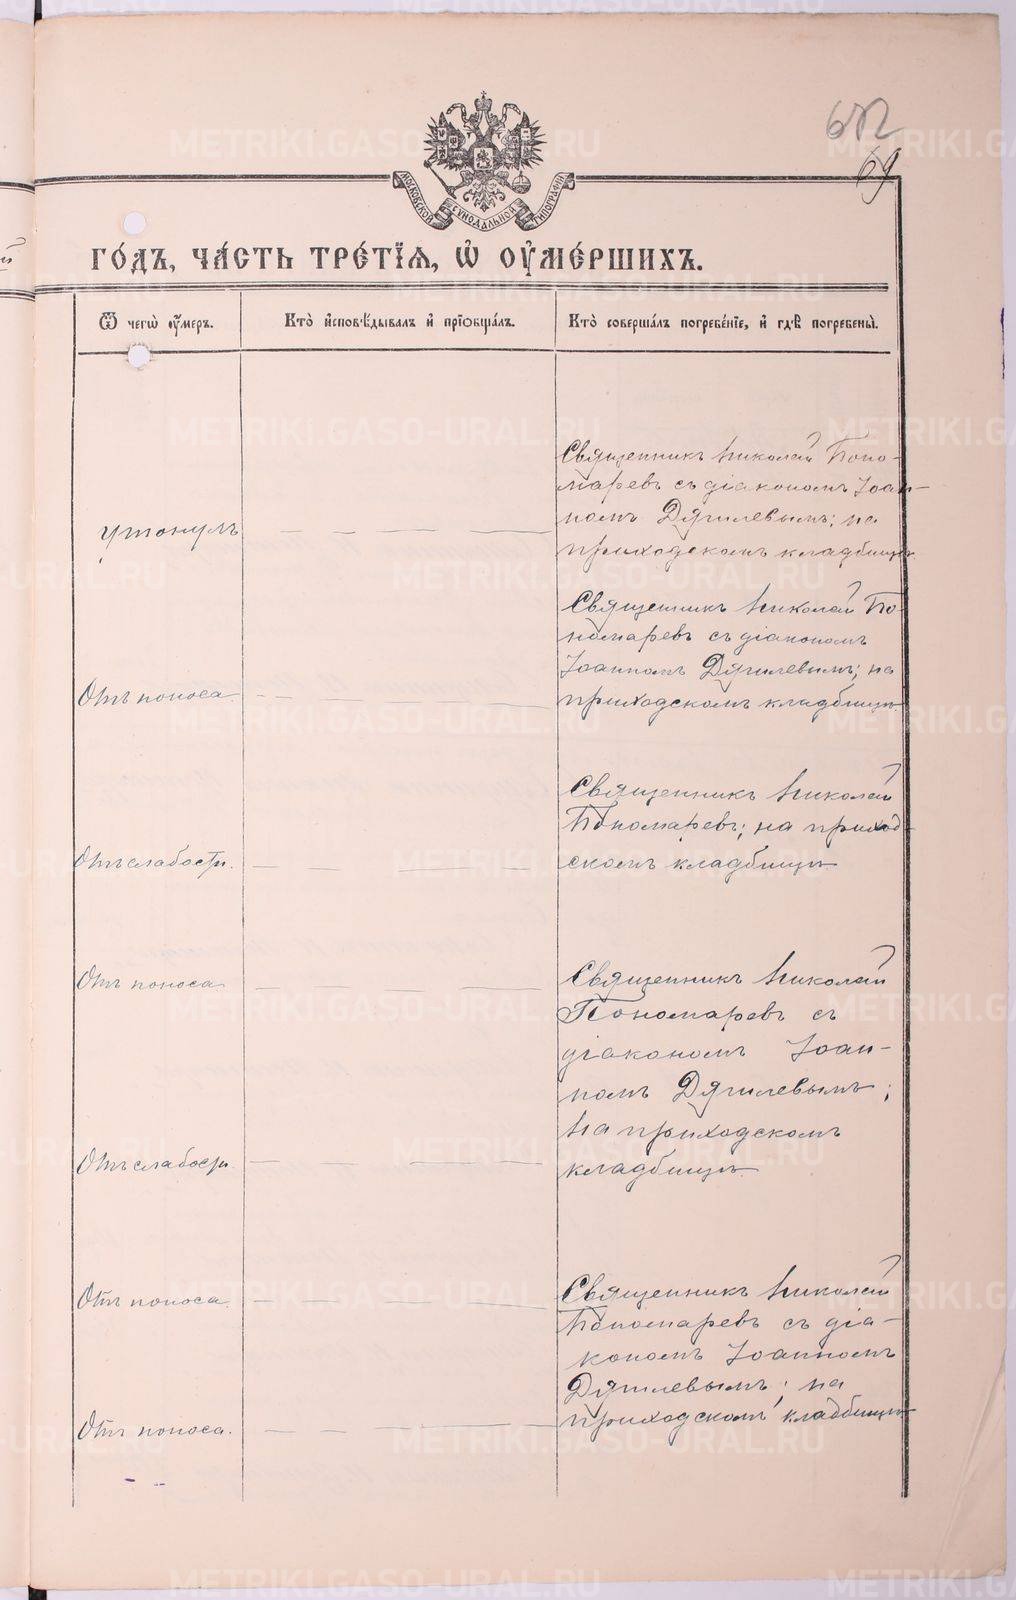 69
МОСКОВСКОЙ СѴНОДАЛЬНОЙ ТИПОГРАФІИ
ГО́ДЪ, ЧА́СТЬ ТРЕ́ТІѦ, Ѡ҆ ОУ҆МЕ́РШИХЪ.
Ѿ чегѡ̀ оу҆́меръ.
Кто̀ и҆сповѣ́дывалъ и҆ прїѡбща́лъ.
Кто̀ соверша́лъ погребе́нїе, и҆ гдѣ̀ погребены̀.
утонулъ
Священникъ Николай Поно-
маревъ съ діакономъ Іоан-
номъ Дягилевымъ; на
приходскомъ кладбищѣ
Отъ поноса
Священникъ Николай По-
номаревъ съ діакономъ
Іоанномъ Дягилевымъ; на
приходскомъ кладбищѣ
Отъ слабости.
Священникъ Николай
Пономаревъ; на приход-
скомъ кладбищѣ
Отъ поноса
Священникъ Николай
Пономаревъ съ
діакономъ Іоан-
номъ Дягилевымъ;
на приходскомъ
кладбищѣ
Отъ слабости.
Отъ поноса.
Священникъ Николай
Пономаревъ съ діа-
кономъ Іоанномъ
Дягилевымъ; на
приходскомъ кладбищѣ
Отъ поноса.
METRIKI.GASO-URAL.RU